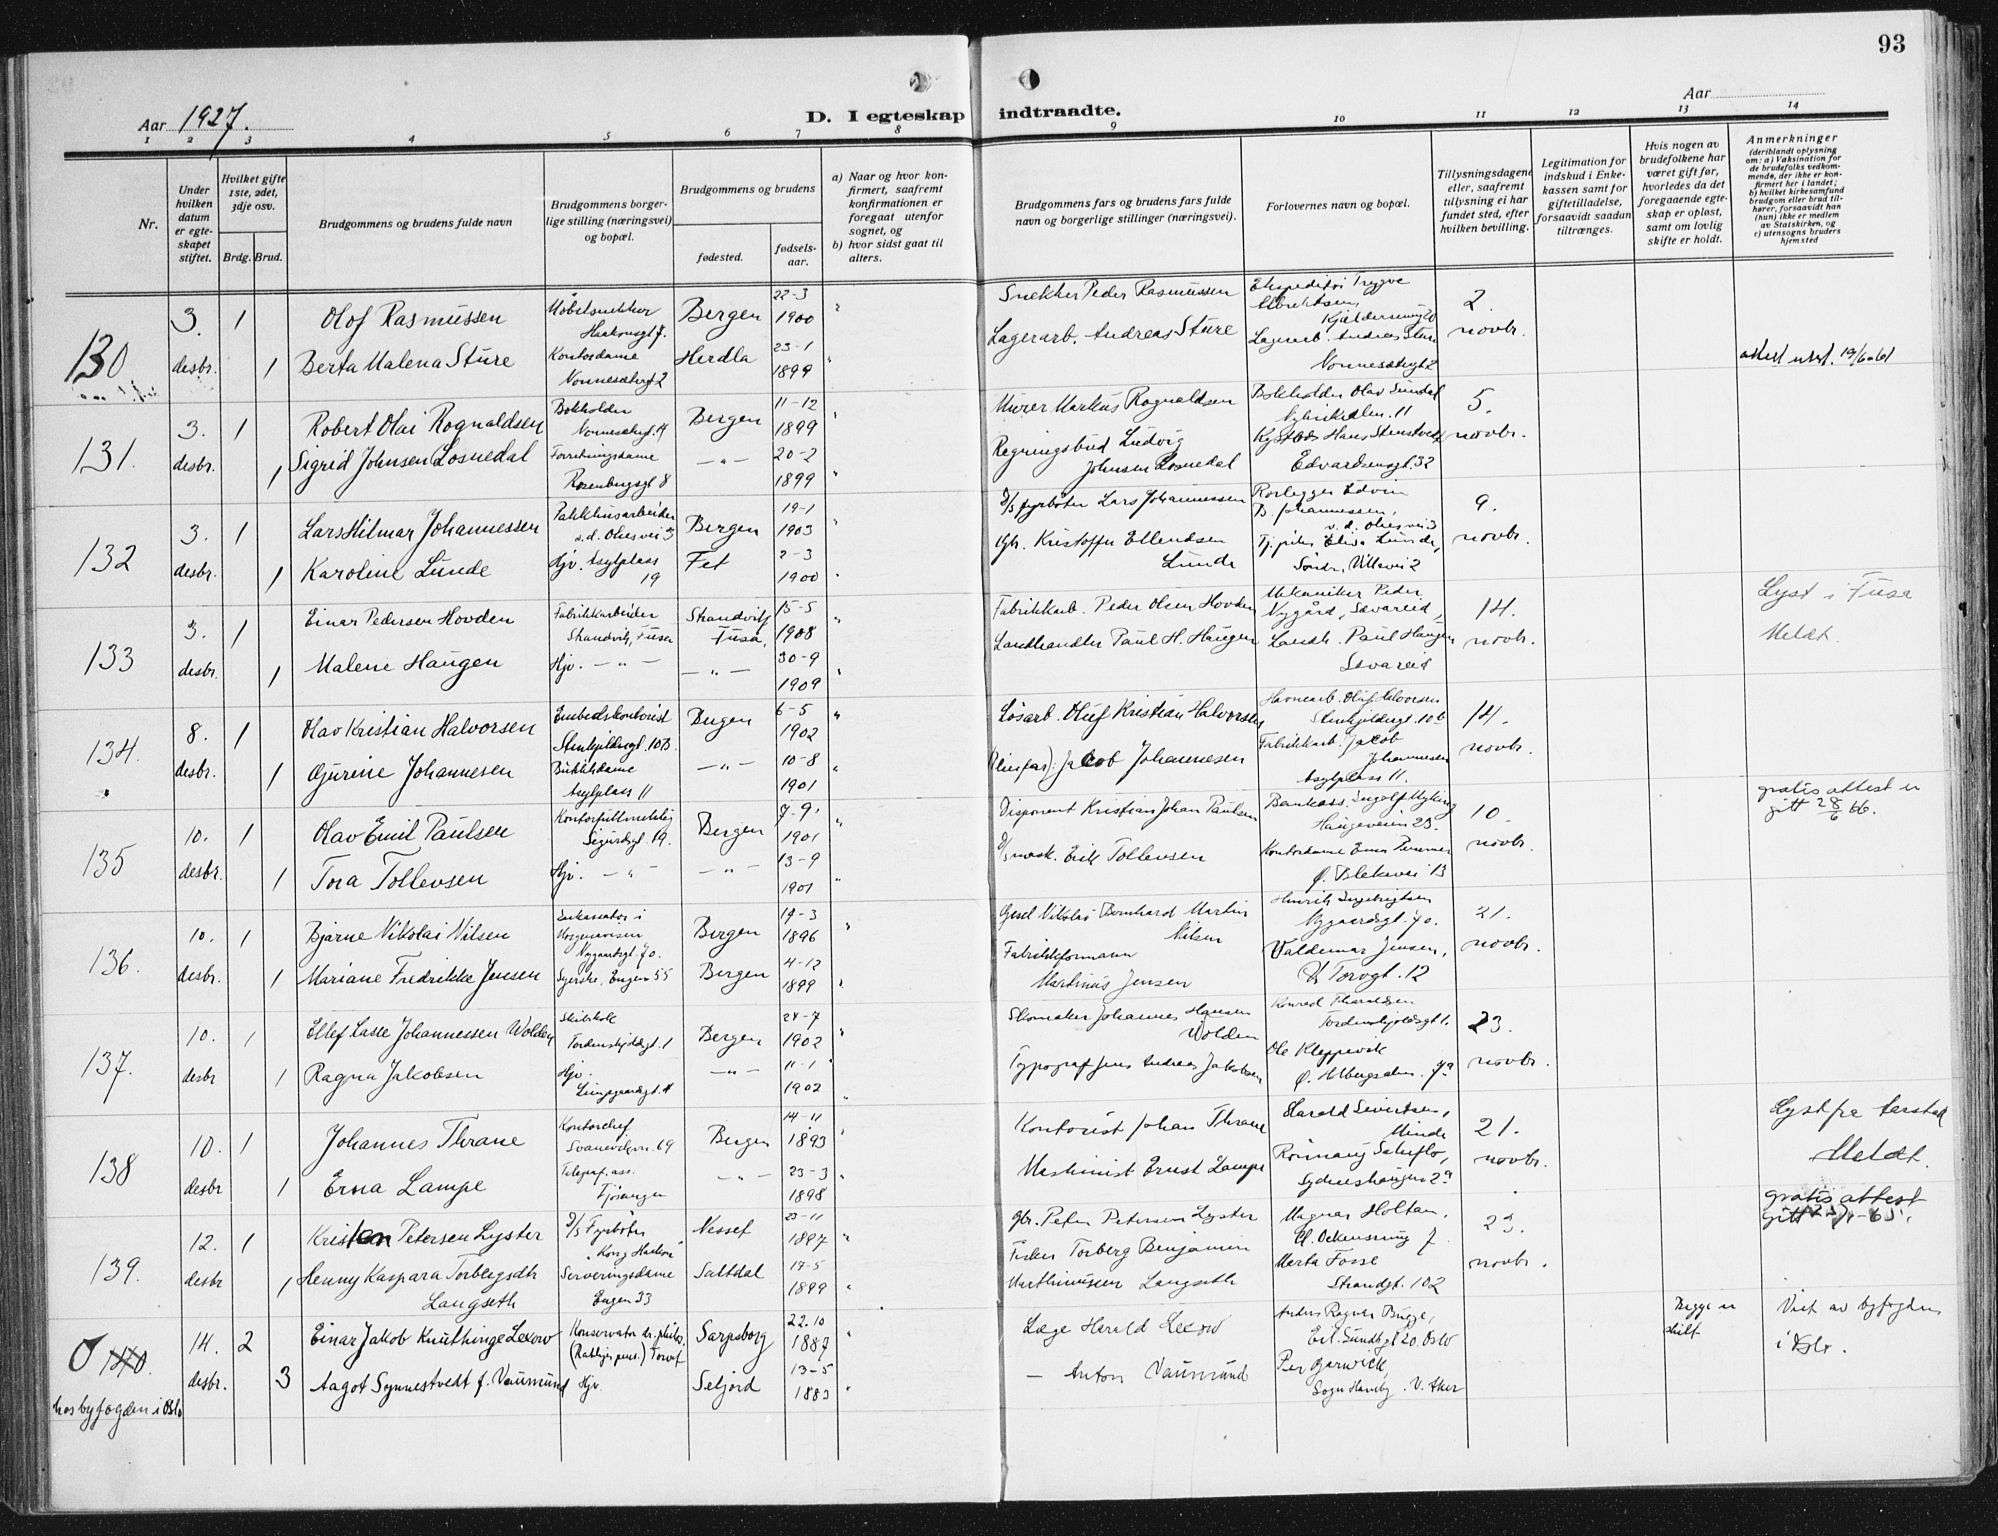 93
Aar 1927.
D. I egteskap indtraadte.
Aar
1 2 3 4 5 6 7 8 9 10 11 12 13 14
Nr.
Under hvilken datum er egteskapet stiftet.
Hvilket gifte 1ste, 2det, 3dje osv.
Brdg. Brud.
Brudgommens og brudens fulde navn
Brudgommens borgerlige stilling (næringsvei) og bopæl.
Brudgommens og brudens
fødested.
fødselsaar.
a) Naar og hvor konfirmert, saafremt konfirmationen er foregaat utenfor sognet, og
b) hvor sidst gaat til alters.
Brudgommens fars og brudens fars fulde navn og borgerlige stillinger (næringsvei).
Forlovernes navn og bopæl.
Tillysningsdagene eller, saafremt tillysning ei har fundet sted, efter hvilken bevilling.
Legitimation for indskud i Enkekassen samt for giftetilladelse, forsaavidt saadan tiltrænges.
Hvis nogen av brudefolkene har været gift før, hvorledes da det foregaaende egteskap er opløst, samt om lovlig skifte er holdt.
Anmerkninger (deriblandt oplysning om: a) Vaksination for de brudefolks vedkommende, der ikke er konfirmert her i landet; b) hvilket kirkesamfund brudgom eller brud tilhører, forsaavidt han (hun) ikke er medlem av Statskirken, og c) utensogns bruders hjemsted
130 3. desbr. 1 Olof Rasmussen Møbelsnekker Haakonsgt 7. Bergen 22-3 1900 Snekker Peder Rasmussen Ekspeditør Trygve 2. novbr.
1 Berta Malena Sture Kontordame Nonnesætergt 2 Herdla 23-1 1899 Lagerarb. Andreas Sture Lagerarb. Andreas Sture Nonnesætergt 2 attest utst. 19/6-61
131. 3. desbr. 1 Robert Olai Rognaldsen Bokholder Nonnesætergt. 4 Bergen 11-12 1899 Murer Markus Rognaldsen Bokholder Olav Sundal 11 5. novbr.
1 Sigrid Johnsen Losnedal Forretningsdame Rosenbergsgt 8 -"- 20-2 1899 Regningsbud Ludvig Johnsen Losnedal Hans Stenstvedt Edvardsensgt. 32
132 3. desbr. 1 Lars Hilmar Johannessen Pakkhusarbeider v.d. Olesvei 3 Bergen 19-1 1903 D/s fyrbøter Lars Johannessen Rørlegger Edvin B. Johannessen, v.d. Olesvei 3 9. novbr.
1 Karoline Lunde Hjv. Asylplass 19 Fet 2-3 1900 Gbr. Kristoffer Ellendsen Lunde Elisa Lunde, Søndr. Villavei 2
133 3. desbr. 1 Einar Pedersen Hovden Fabrikkarbeider Strandvik, Fusa Strandvik Fusa, 15-5 1908 Fabrikkarb. Peder Olsen Hovden Mekaniker Peder Nygård, Sævareid, 14. novbr. Lyst i Fusa Meldt.
1 Malene Haugen Hjv. -"- -"- 30-9 1909 Landhandler Paul H. Haugen Landh. Paul Haugen Sævareid
134. 8. desbr. 1 Olav Kristian Halvorsen Steinkjellergt. 10B. Bergen 6-5 1902 Løsarb. Oluf Kristian Halvorsen Havnearb. Oluf Halvorsen Steinkjellergt. 10b 14. novbr.
1 Gjurine Johannesen Butikkdame Asylplass 11 -"- 10-8 1901 Jacob Johannesen Fabrikkarb. Jacob Johannesen Asylplass 11.
135 10. desbr. 1 Olav Emil Paulsen Sigurdsgt. 19. Bergen 7-9 1901 Disponent Kristian Johan Paulsen Ingolf Myking Haugeveien 23. 10 novbr. gratis attest er gitt 28/6 66.
1 Tora Tollevsen Hjv. -"- -"- 13-9 1901 Erik Tollevsen Kontordame Ø. Blekevei 13
136. 10. desbr. 1 Bjarne Nikolai Nilsen Inkassator i Nygaardsgt. 70. Bergen 19-3 1896 Nikolai Bernhard Martin Nilsen Henrik Ingebrigtsen Nygaardsgt. 70. 21. novbr.
1 Mariane Fredrikke Jensen Syerske, Engen 55 Bergen 4-12 1899 Fabrikkformann Martinus Jensen Valdemar Jensen, Torvgt. 12
137. 10. desbr 1 Ellef Lasse Johannessen Wolden Tordenskjoldsgt. 1 Bergen 24-7 1902 Skomaker Johannes Hansen Wolden Konrad Tharaldsen Tordenskjoldsgt 1. 23. novbr.
1 Ragna Jakobsen Hjv. Lungegaardsgt. 4 -"- 11-1 1902 Typograf Jens Andreas Jakobsen Ole Kleppevik Ø. Holbergsalm. 7a
138 10. desbr 1 Johannes Thrane Kontorchef Svaneviksvn. 69 Bergen 14-11 1893 Kontorist Johan Thrane Harald Sivertsen, Minde 21. novbr. Lyst fra Årstad Meldt.
1 Erna Lampe Telegraf. ass. Fjøsanger -"- 23-3 1898 Maskinist Ernst Lampe Rønnaug Sydneshaugen 2a
139. 12. desbr 1 Kristen Petersen Lyster D/s Fyrbøter "Kong Haakon" Nesset 23-11 1897 Gbr. Peter Petersen Lyster Magnus Holtan, 23. novbr. gratis attest gitt
1 Henny Kaspara Torbergsdtr Langseth Serveringsdame Engen 33 Saltdal 17-5 1899 Fisker Torberg Benjamin Marthinussen Langseth Marta Fosse Strandgt. 102
0 140. hos byfogden i Oslo 14. desbr. 2 Einar Jakob Knuthinge Lexow Konservator dr. philos. Sarpsborg 22.10 1887 Læge Harald Lexow Anders Ragnar Bugge, Eil. Sundtsgt 20. Oslo Begge er skilt Viet av byfogden i Oslo.
3 Aagot Synnestvedt f. Vaumund Hjv. Seljord 13-5 1883 - Anton Vaumund Per Barwick, Sogn Haveby. V. Aker